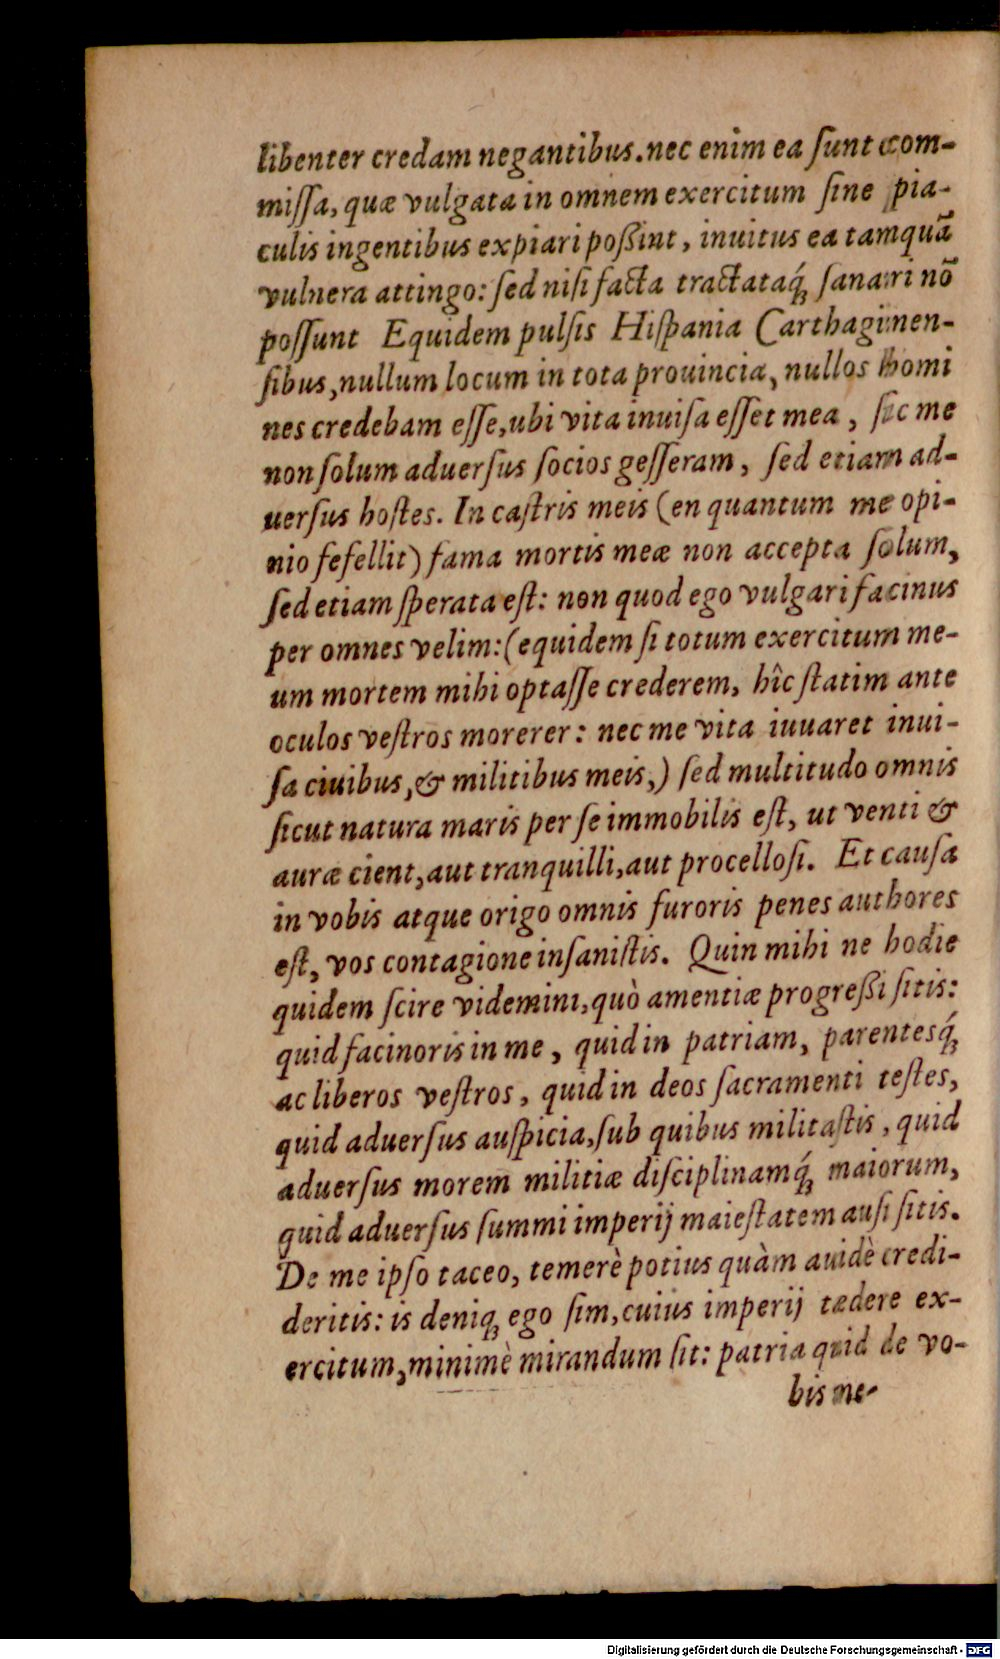 libenter credam negantibus. nec enim ea ſunt com-
miſſa, quæ vulgata in omnem exercitum ſine pia-
culis ingentibus expiari poßint, inuitus ea tamquã
vulnera attingo: ſed niſi facta tractataq́; ſanari nõ
poſſunt Equidem pulſis Hiſpania Carthaginen-
ſibus, nullum locum in tota prouincia, nullos homi
nes credebam eſſe, ubi vita inuiſa eſſet mea, ſic me
non ſolum aduerſus ſocios geſſeram, ſed etiam ad-
uerſus hoſtes. In caſtris meis (en quantum me opi-
nio fefellit) fama mortis meæ non accepta ſolum,
ſed etiam ſperata eſt: non quod ego vulgari facinus
per omnes velim: (equidem ſi totum exercitum me-
um mortem mihi optaſſe crederem, hîc ſtatim ante
oculos veſtros morerer: nec me vita iuuaret inui-
ſa ciuibus, & militibus meis,) ſed multitudo omnis
ſicut natura maris per ſe immobilis eſt, ut venti &
auræ cient, aut tranquilli, aut procelloſi. Et cauſa
in vobis atque origo omnis furoris penes authores
eſt, vos contagione inſaniſtis. Quin mihi ne hodie
quidem ſcire videmini, quò amentiæ progreßi ſitis:
quid facinoris in me, quid in patriam, parentesq́;
ac liberos veſtros, quid in deos ſacramenti teſtes,
quid aduerſus auſpicia, ſub quibus militaſtis, quid
aduerſus morem militiæ diſciplinamq́; maiorum,
quid aduerſus ſummi imperij maieſtatem auſi ſitis.
De me ipſo taceo, temerè potius quàm auidè credi-
deritis: is deniq; ego ſim, cuius imperij tædere ex-
ercitum, minimè mirandum ſit: patria quid de vo-
bis me-
Digitalisierung gefördert durch die Deutsche Forschungsgemeinschaft - DFG